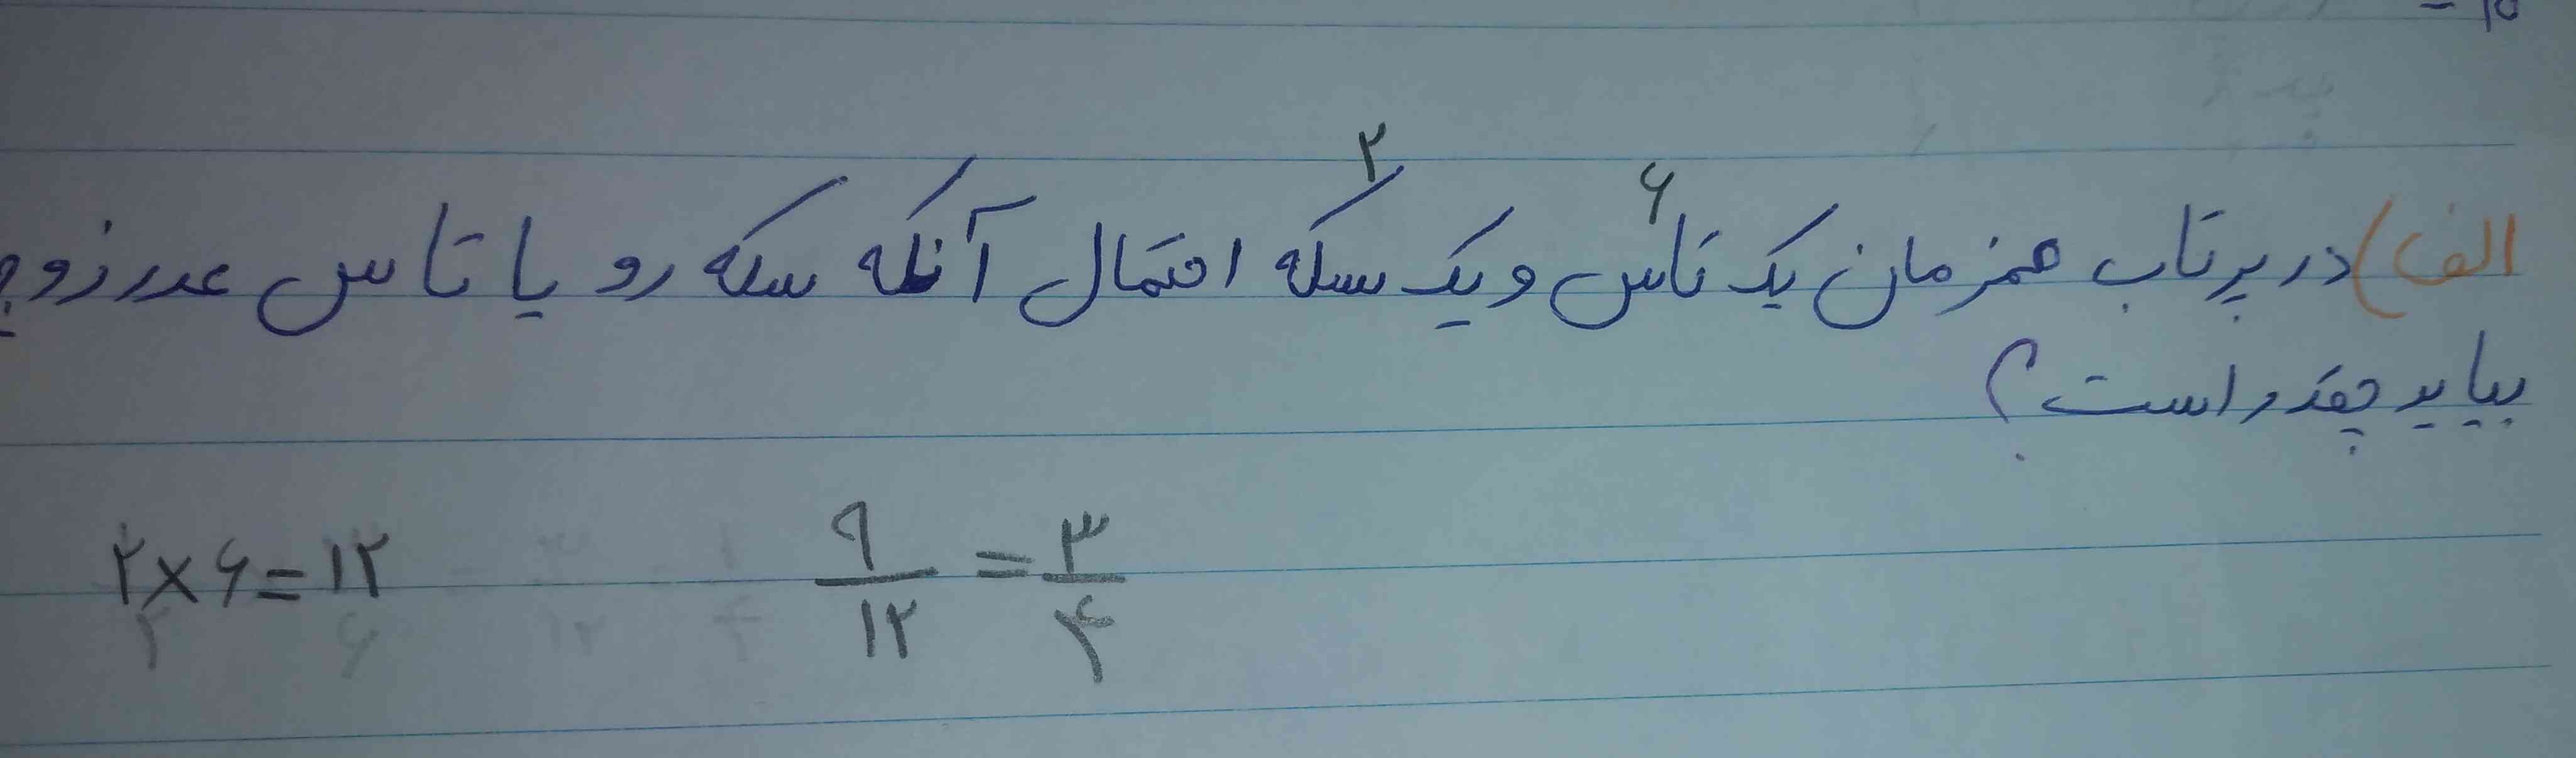 ۲
۶
الف) در پرتاب همزمان یک تاس و یک سکه احتمال آنکه سکه رو یا تاس عدد زوج
بیاید چقدر است؟
۲×۶=۱۲ ۹/۱۲ = ۳/۴